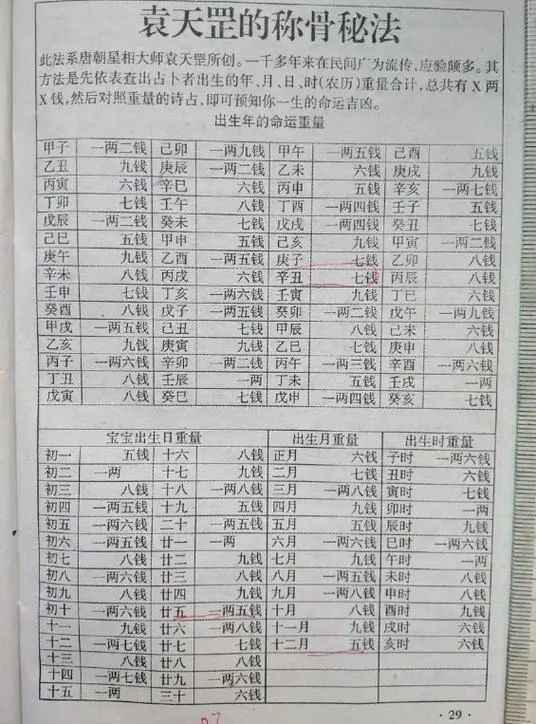 袁天罡的称骨秘法
此法系唐朝星相大师袁天罡所创。一千多年来在民间广为流传,应验颇多。其
方法是先依表查出占卜者出生的年、月、日、时(农历)重量合计,总共有X两
X钱,然后对照重量的诗占,即可预知你一生的命运吉凶。
出生年的命运重量
甲子 一两二钱 己卯 一两九钱 甲午 一两五钱 己酉 五钱
乙丑 九钱 庚辰 一两二钱 乙未 六钱 庚戌 九钱
丙寅 六钱 辛巳 六钱 丙申 五钱 辛亥 一两七钱
丁卯 七钱 壬午 八钱 丁酉 一两四钱 壬子 五钱
戊辰 一两二钱 癸未 七钱 戊戌 一两四钱 癸丑 七钱
己巳 五钱 甲申 五钱 己亥 九钱 甲寅 一两二钱
庚午 九钱 乙酉 一两五钱 庚子 七钱 乙卯 八钱
辛未 八钱 丙戌 六钱 辛丑 七钱 丙辰 八钱
壬申 七钱 丁亥 一两六钱 壬寅 九钱 丁巳 六钱
癸酉 八钱 戊子 一两五钱 癸卯 一两二钱 戊午 一两九钱
甲戌 一两五钱 己丑 七钱 甲辰 八钱 己未 六钱
乙亥 九钱 庚寅 九钱 乙巳 七钱 庚申 八钱
丙子 一两六钱 辛卯 一两二钱 丙午 一两三钱 辛酉 一两六钱
丁丑 八钱 壬辰 一两 丁未 五钱 壬戌 一两
戊寅 八钱 癸巳 七钱 戊申 一两四钱 癸亥 七钱
宝宝出生日重量 出生月重量 出生时重量
初一 五钱 十六 八钱 正月 六钱 子时 一两六钱
初二 一两 十七 九钱 二月 七钱 丑时 六钱
初三 八钱 十八 一两八钱 三月 一两八钱 寅时 七钱
初四 一两五钱 十九 五钱 四月 九钱 卯时 一两
初五 一两六钱 二十 一两五钱 五月 五钱 辰时 九钱
初六 一两五钱 廿一 一两 六月 一两六钱 巳时 一两六钱
初七 八钱 廿二 九钱 七月 九钱 午时 一两
初八 一两六钱 廿三 八钱 八月 一两五钱 未时 八钱
初九 八钱 廿四 九钱 九月 一两八钱 申时 八钱
初十 一两六钱 廿五 一两五钱 十月 八钱 酉时 九钱
十一 九钱 廿六 一两八钱 十一月 九钱 戌时 六钱
十二 一两七钱 廿七 七钱 十二月 五钱 亥时 六钱
十三 八钱 廿八 八钱
十四 一两七钱 廿九 一两六钱
十五 一两 三十 六钱
·29·